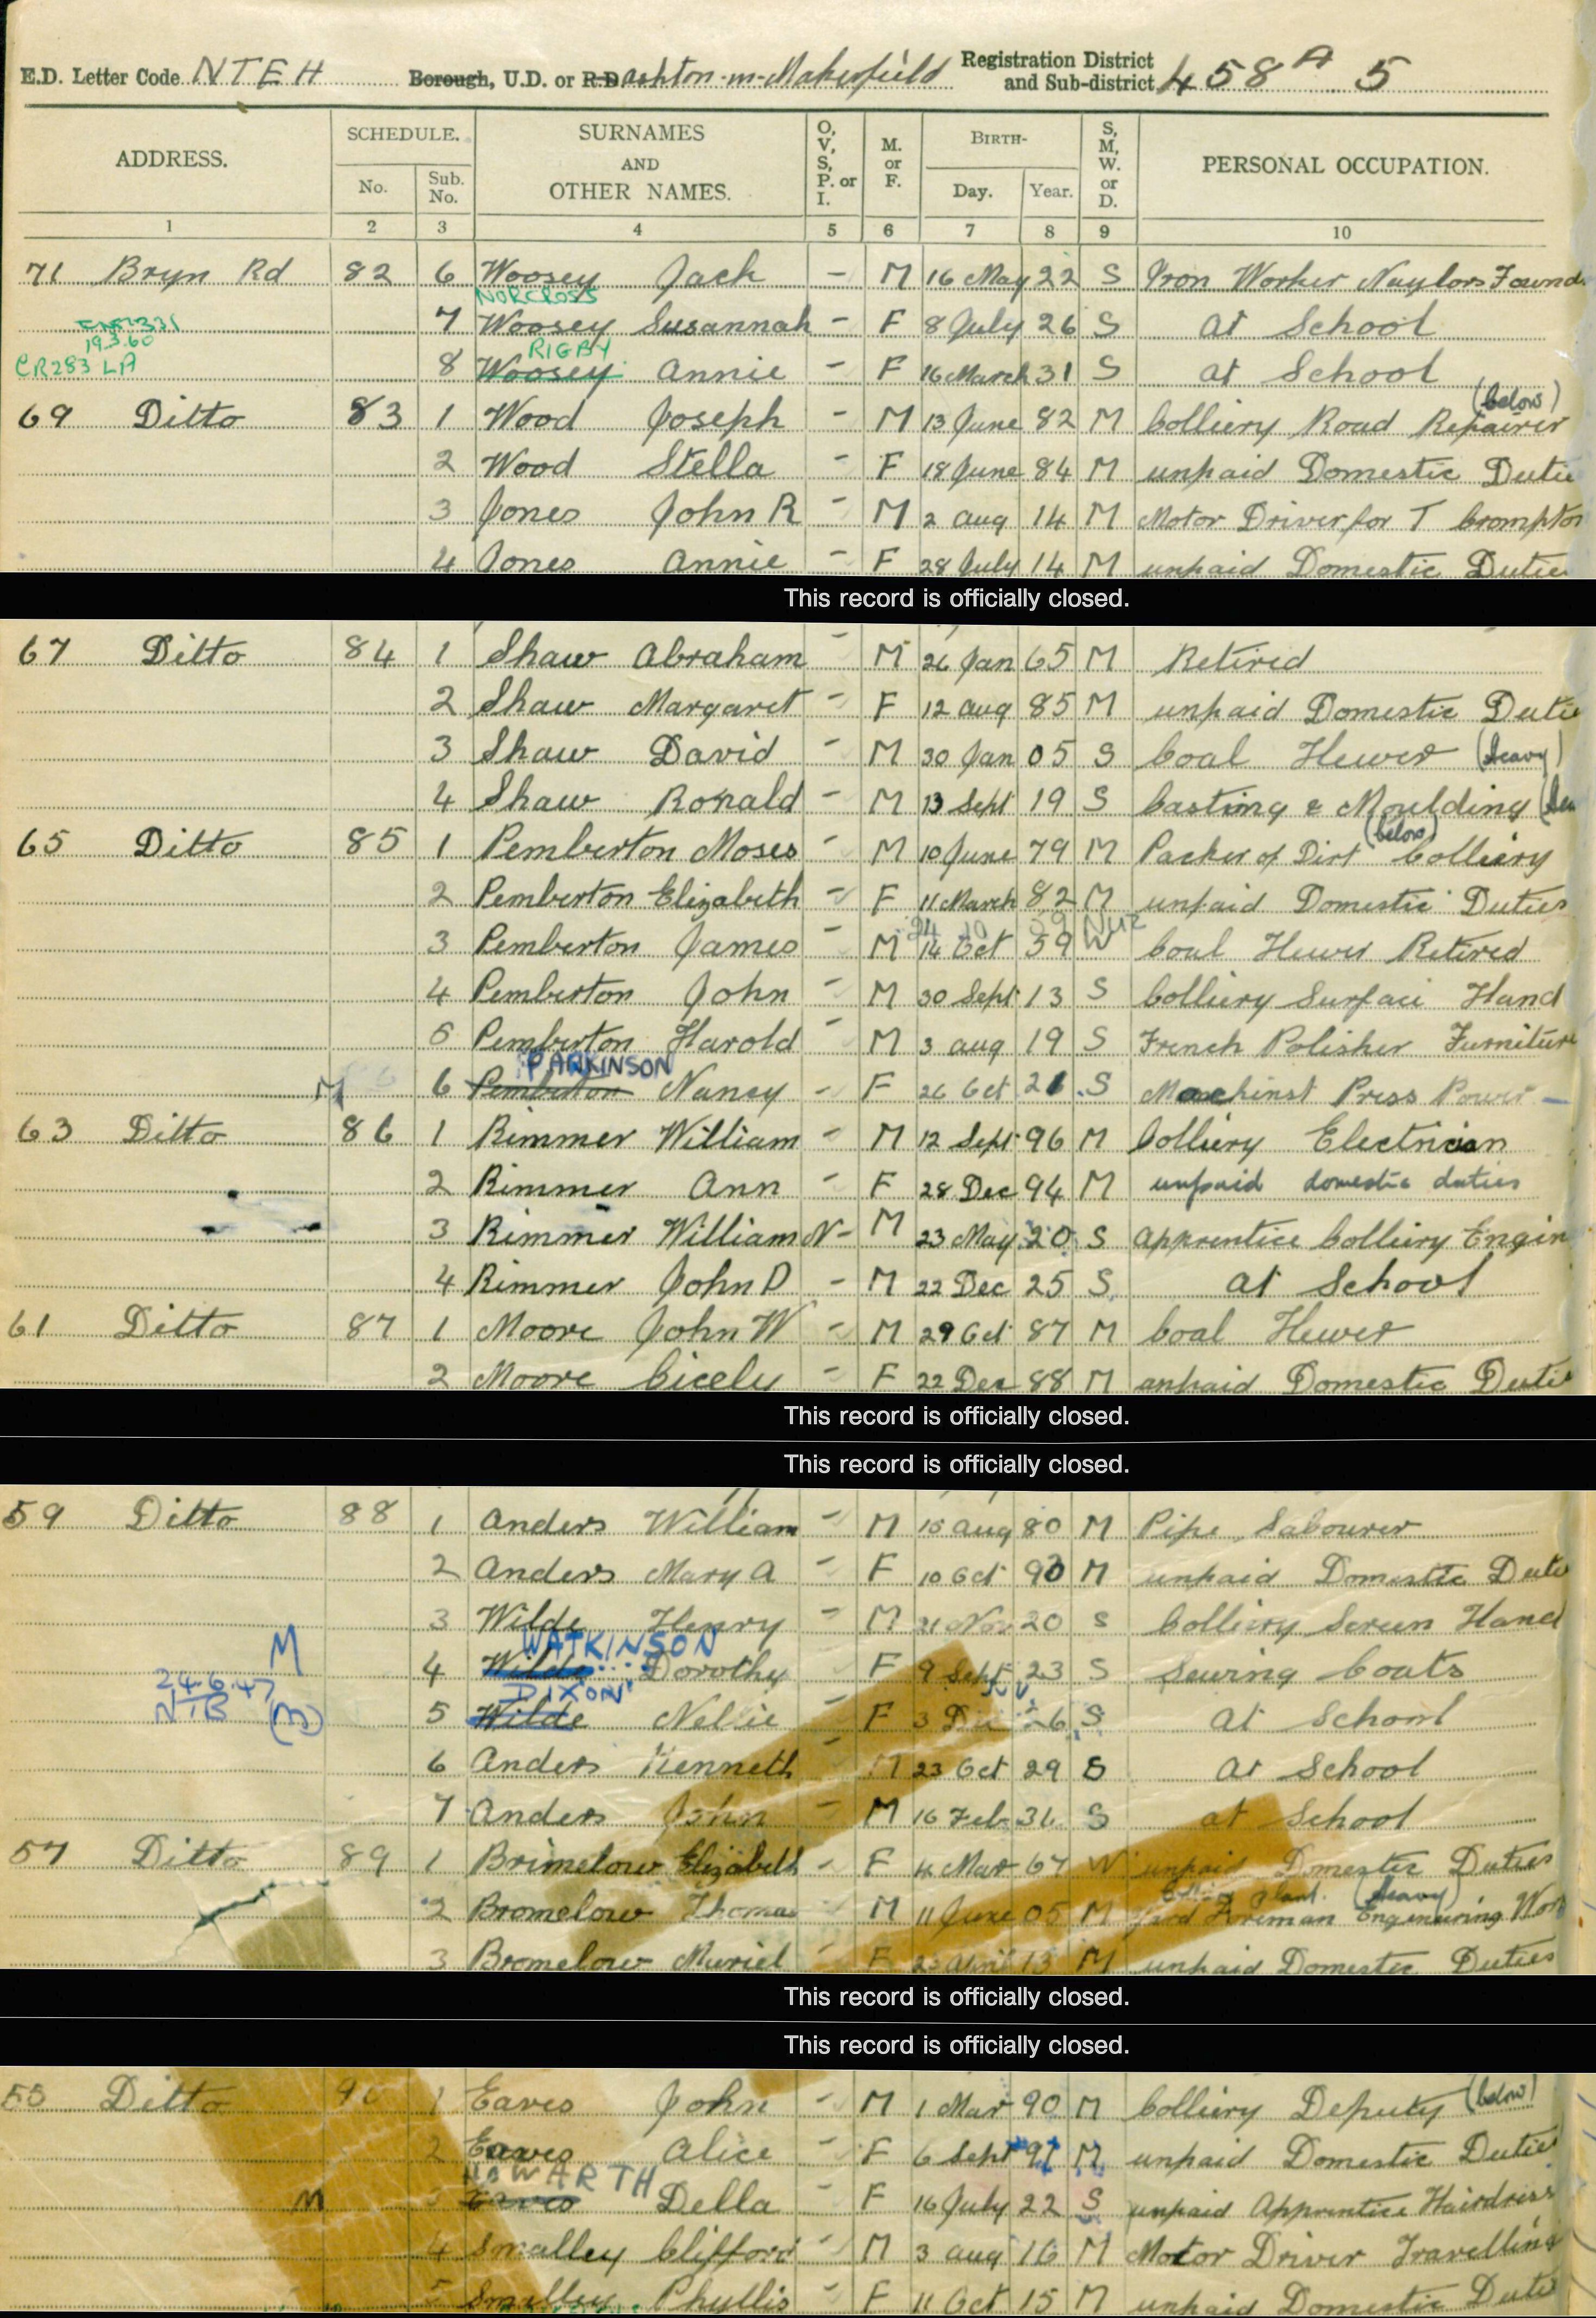 E.D. Letter Code NTEH Borough, U.D. or R.D. Ashton-in-Makerfield Registration District and Sub-district 458A 5
ADDRESS. SCHEDULE. No. Sub. No. SURNAMES AND OTHER NAMES. O, V, S, P. or I. M. or F. BIRTH- Day. Year. S, M, W. or D. PERSONAL OCCUPATION.
1 2 3 4 5 6 7 8 9 10
71 Bryn Rd 82 6 Woosey Jack - M 16 May 22 S Iron Worker Naylors Found
NORCROSS
7 Woosey Susannah - F 8 July 26 S at School
19.3.60 RIGBY
CR283 LA 8 Woosey Annie - F 16 March 31 S at School
(below)
69 Ditto 83 1 Wood Joseph - M 13 June 82 M Colliery Road Repairer
2 Wood Stella - F 18 June 84 M unpaid Domestic Dutie
3 Jones John R - M 2 Aug 14 M Motor Driver for T Crompton
4 Jones Annie - F 28 July 14 M unpaid Domestic Dutie
This record is officially closed.
67 Ditto 84 1 Shaw Abraham - M 26 Jan 65 M Retired
2 Shaw Margaret - F 12 Aug 85 M unpaid Domestic Dutie
3 Shaw David - M 30 Jan 05 S Coal Hewer (heavy)
4 Shaw Ronald - M 13 Sept 19 S Casting & Moulding
(below)
65 Ditto 85 1 Pemberton Moses - M 10 June 79 M Packer of Dirt Colliery
2 Pemberton Elizabeth - F 11 March 82 M unpaid Domestic Duties
3 Pemberton James - M 14 Oct 59 W Coal Hewer Retired
4 Pemberton John - M 30 Sept 13 S Colliery Surface Hand
5 Pemberton Harold - M 3 Aug 19 S French Polisher Furniture
PARKINSON
M 6 Pemberton Nancy - F 26 Oct 21 S Machinst Press Power
63 Ditto 86 1 Rimmer William - M 12 Sept 96 M Colliery Electrician
2 Rimmer Ann - F 28 Dec 94 M unpaid domestic duties
3 Rimmer William N - M 23 May 20 S Apprentice Colliery Engin
4 Rimmer John D - M 22 Dec 25 S at School
61 Ditto 87 1 Moore John W - M 29 Oct 87 M Coal Hewer
2 Moore Cicely - F 22 Dec 88 M unpaid Domestic Dutie
This record is officially closed.
This record is officially closed.
59 Ditto 88 1 Anders William - M 15 Aug 80 M Pipe Labourer
2 Anders Mary A - F 10 Oct 90 M unpaid Domestic Dutie
3 Wilde Henry - M 21 Nov 20 S Colliery Screen Hand
WATKINSON
M 4 Wilde Dorothy F 9 Sept 23 S Sewing Coats
24.6.47 DIXON
NTB (M) 5 Wilde Nellie - F 3 Dec 26 S at School
6 Anders Kenneth - M 23 Oct 29 S at School
7 Anders John - M 16 Feb 31 S at School
57 Ditto 89 1 Brimelow Elizabeth - F 4 Mar 67 W unpaid Domestic Duties
Plant. (heavy)
2 Bromelow Thomas M 11 June 05 M Yard Foreman Engineering Wor
3 Bromelow Muriel - F April 13 M unpaid Domestic Duties
This record is officially closed.
This record is officially closed.
55 Ditto 90 1 Eaves John - M 1 Mar 90 M Colliery Deputy (below)
2 Eaves Alice - F 6 Sept 91 M unpaid Domestic Dutie
HOWARTH
M 3 Eaves Della - F 16 July 22 S unpaid Apprentice Hairdress
4 Smalley Clifford - M 3 Aug 16 M Motor Driver Travelling
5 Smalley Phyllis - F 11 Oct 15 M unpaid Domestic Dutie